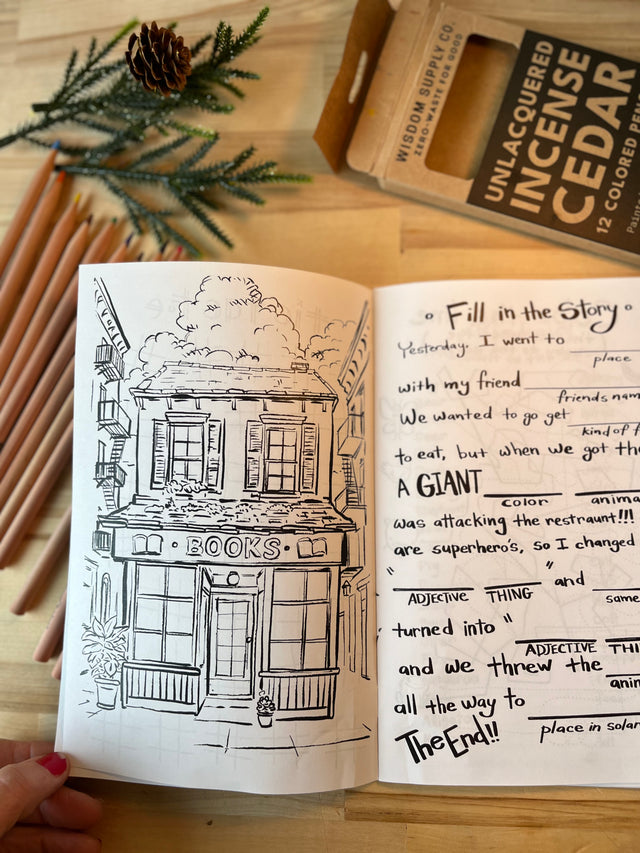 WISDOM SUPPLY CO.
ZERO-WASTE FOR GOOD
UNLACQUERED
INCENSE
CEDAR
12 COLORED PE
BOOKS
Fill in the Story
Yesterday. I went to
place
with my friend
friends nam
We wanted to go get
kind of f
to eat, but when we got the
A GIANT
color anima
was attacking the restraunt!!!
are superhero's, so I changed
" " and
ADJECTIVE THING same
turned into "
ADJECTIVE THI
and we threw the
anim
all the way to
place in solar
The End!!